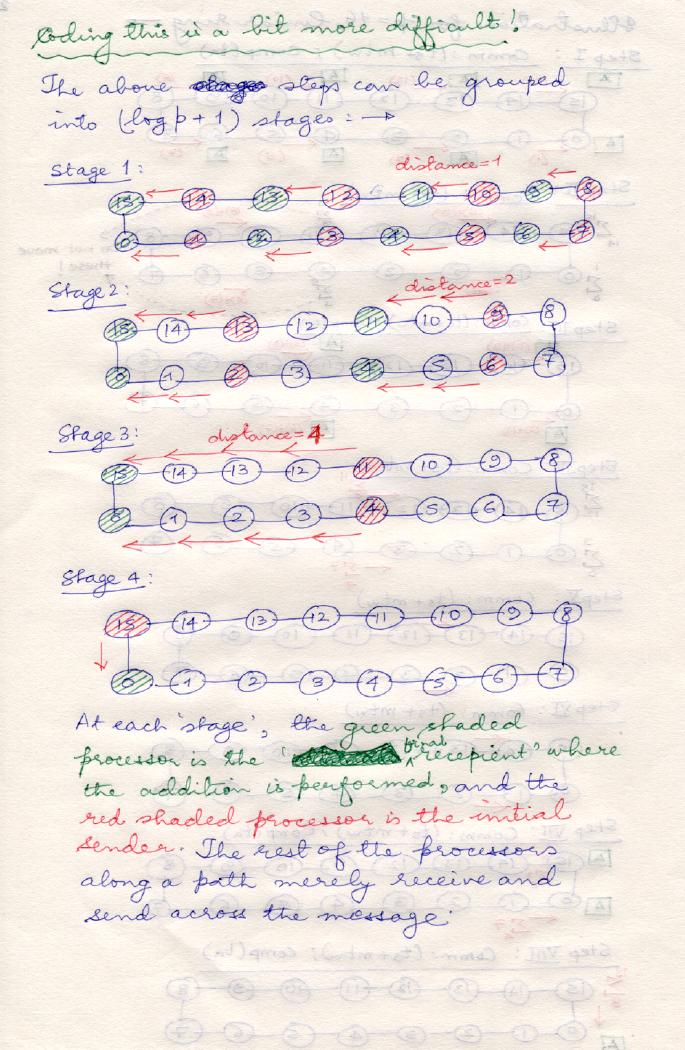 Coding this is a bit more difficult!
The above steps can be grouped
into (log p + 1) stages : →
Stage 1:
distance=1
15 14 13 12 11 10 9 8
0 1 2 3 4 5 6 7
Stage 2:
distance=2
15 14 13 12 11 10 9 8
0 1 2 3 4 5 6 7
Stage 3:
distance=4
15 14 13 12 11 10 9 8
0 1 2 3 4 5 6 7
Stage 4:
15 14 13 12 11 10 9 8
0 1 2 3 4 5 6 7
At each 'stage', the green shaded
processor is the ' final recepient' where
the addition is performed, and the
red shaded processor is the initial
sender. The rest of the processors
along a path merely receive and
send across the message.